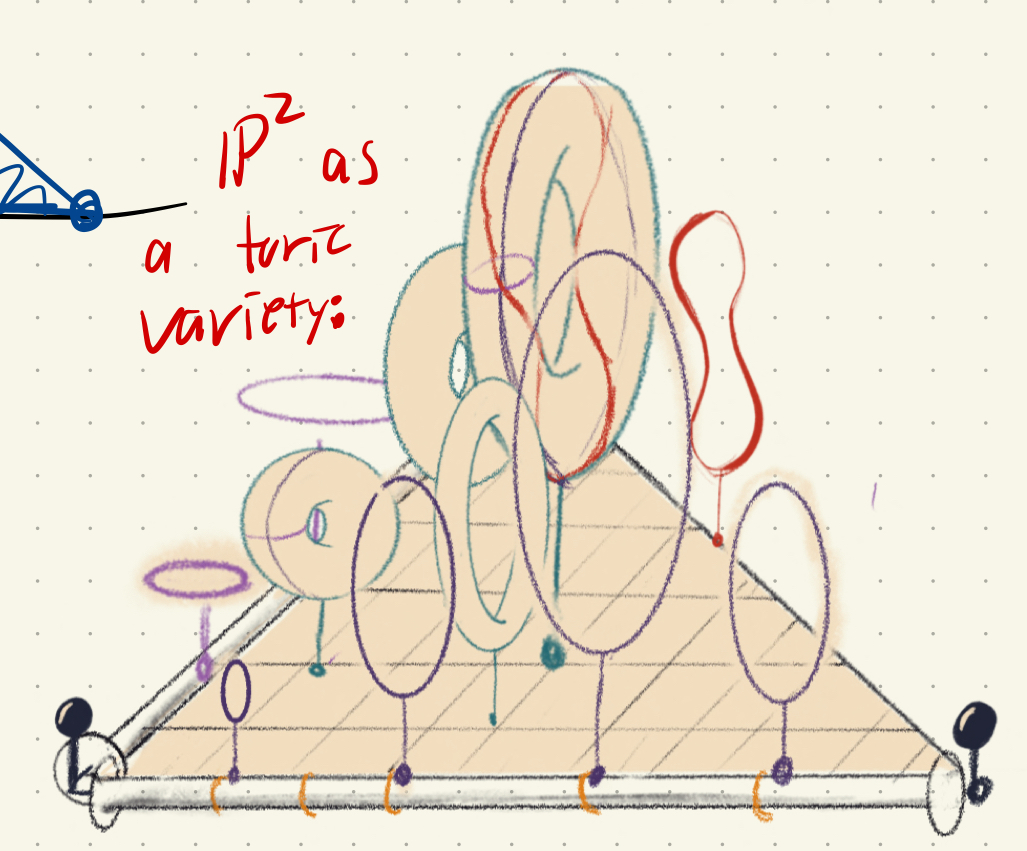 ℙ² as
a toric
variety: